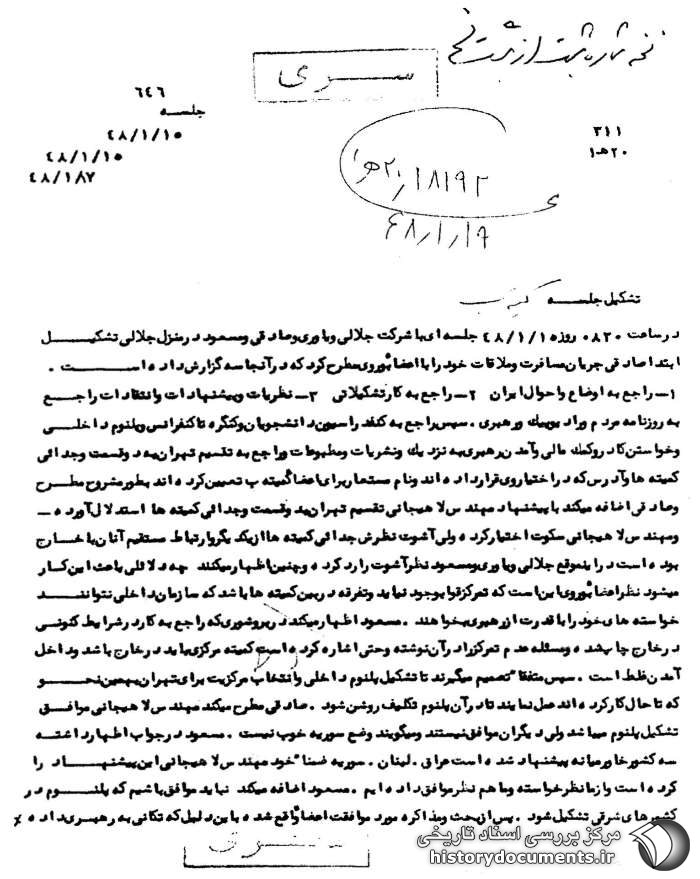 نسخه شماره ثبت از ثبت نسخ
ســری
۶۴۶
جلسـه
۴۸/۱/۱۰
۴۸/۱/۱۵
۴۸/۱/۸۷
۳۱۱
۲۰ه‍۱
۲۰ه‍۱/۱۸۱۹۲
۴۸/۱/۱۹
تشکیل جلســه
در ساعت ۰۸۳۰ روز ۴۸/۱/۱۵ جلسه ای با شرکت جلالی ویاوری وصادقی ومسعود در منزل جلالی تشکیـــل
ابتدا صادقی جریان مسافرت وملاقات خود را با اعضا بوروی مطرح کرد که در آنجا سه گزارش داده اســـت .
۱ــ راجع به اوضاع واحوال ایران ۲ــ راجع به کار تشکیلاتی ۳ــ نظریات وپیشنهادات وانتقادات راجـــع
به روزنامه مردم ورادیوپیک ورهبری . سپس راجع به کنفدراسیون دانشجویان وکنگره تا کنفرانس وپلنوم داخلـــی
وخواستن کادر وکمک مالی وآمدن رهبری به نزدیک ونشریات ومطبوعات وراجع به تقسیم تهران به دو قسمت وجدائی
کمیته ها وآدرس که در اختیار وی قرار داده اند ونام مستعار برای اعضا کمیته ب تعیین کرده اند بطور مشروح مطرح
وصادقی اضافه میکند با پیشنهاد مهندس لاهیجانی تقسیم تهران بدو قسمت وجدائی کمیته ها استدلال آورده ــ
ومهندس لاهیجانی سکوت اختیار کرده ولی آشوت نظرش جدائی کمیته ها از یکدیگر وارتباط مستقیم آنان با خـــارج
بوده است در اینموقع جلالی ویاوری ومسعود نظر آشوت را رد کرده وچنین اظهار میکنند چه دلائلی باعث این کـــار
میشود نظر اعضا بوروی این است که تمرکز قوا بوجود نیاید وتفرقه در بین کمیته ها باشد که سازمان داخلی نتوانند
خواسته های خود را با قدرت از رهبری بخواهند . مسعود اظهار میکند در بروشوری که راجع به کار در شرایط کنونی
در خارج چاپ شده ومسئله عدم تمرکز را در آن نوشته وحتی اشاره کرده است کمیته مرکزی باید در خارج باشد وداخل
آمدن غلط است . سپس متفقا" تصمیم میگیرند تا تشکیل پلنوم داخلی وانتخاب مرکزیت برای تهران بهمین نحـــو
که تا حال کار کرده اند عمل نمایند تا در آن پلنوم تکلیف روشن شود . صادقی مطرح میکند مهندس لاهیجانی موافــق
تشکیل پلنوم میباشد ولی دیگران موافق نیستند ومیگویند وضع سوریه خوب نیست . مسعود در جواب اظهار داشتــه
سه کشور خاورمیانه پیشنهاد شده است عراق . لبنان . سوریه ضمنا" خود مهندس لاهیجانی این پیشنهـــاد را
کرده است واز ما نظر خواسته وما هم نظر موافق داده ایم . مسعود اضافه میکند نباید موافق باشیم که پلنـــوم در
کشورهای شرقی تشکیل شود . پس از بحث ومذاکره مورد موافقت اعضا واقع شده باین دلیل که تکانی به رهبـری داده
ســری
مرکز بررسی اسناد تاریخی
historydocuments.ir